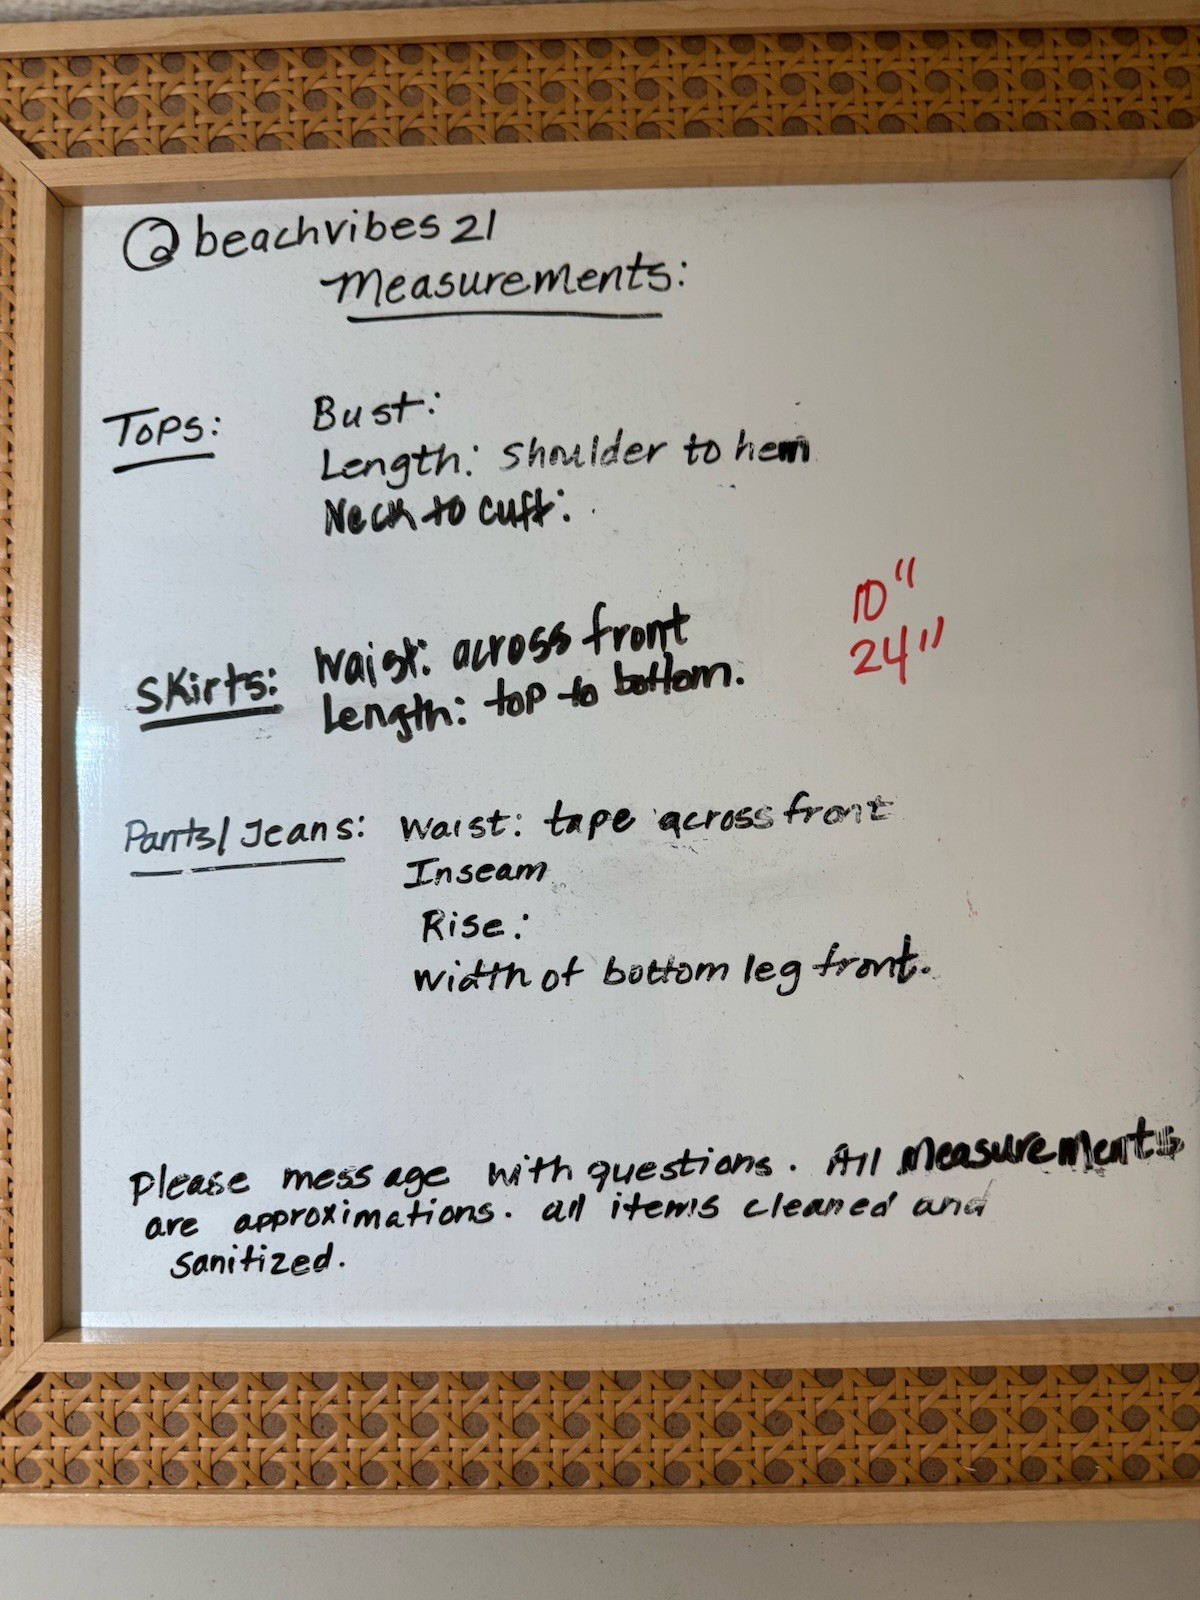 @beachvibes21
Measurements:
Tops: Bust:
Length: Shoulder to hem
Neck to cuff:
Skirts: Waist: across front 10"
Length: top to bottom. 24"
Pants/Jeans: Waist: tape across front
Inseam
Rise:
width of bottom leg front.
Please message with questions. All Measurements
are approximations. all items cleaned and
sanitized.